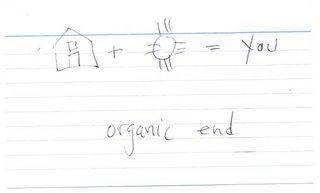 + = you
organic end